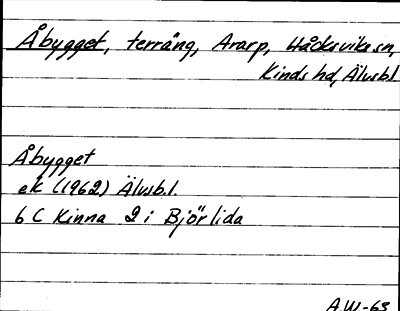 Åbygget, terräng, Ararp, Håcksvik sn,
Kinds hd, Älvsbl
Åbygget
ek (1962) Älvsb.l.
6 C Kinna 2 i Björlida
A.W-63